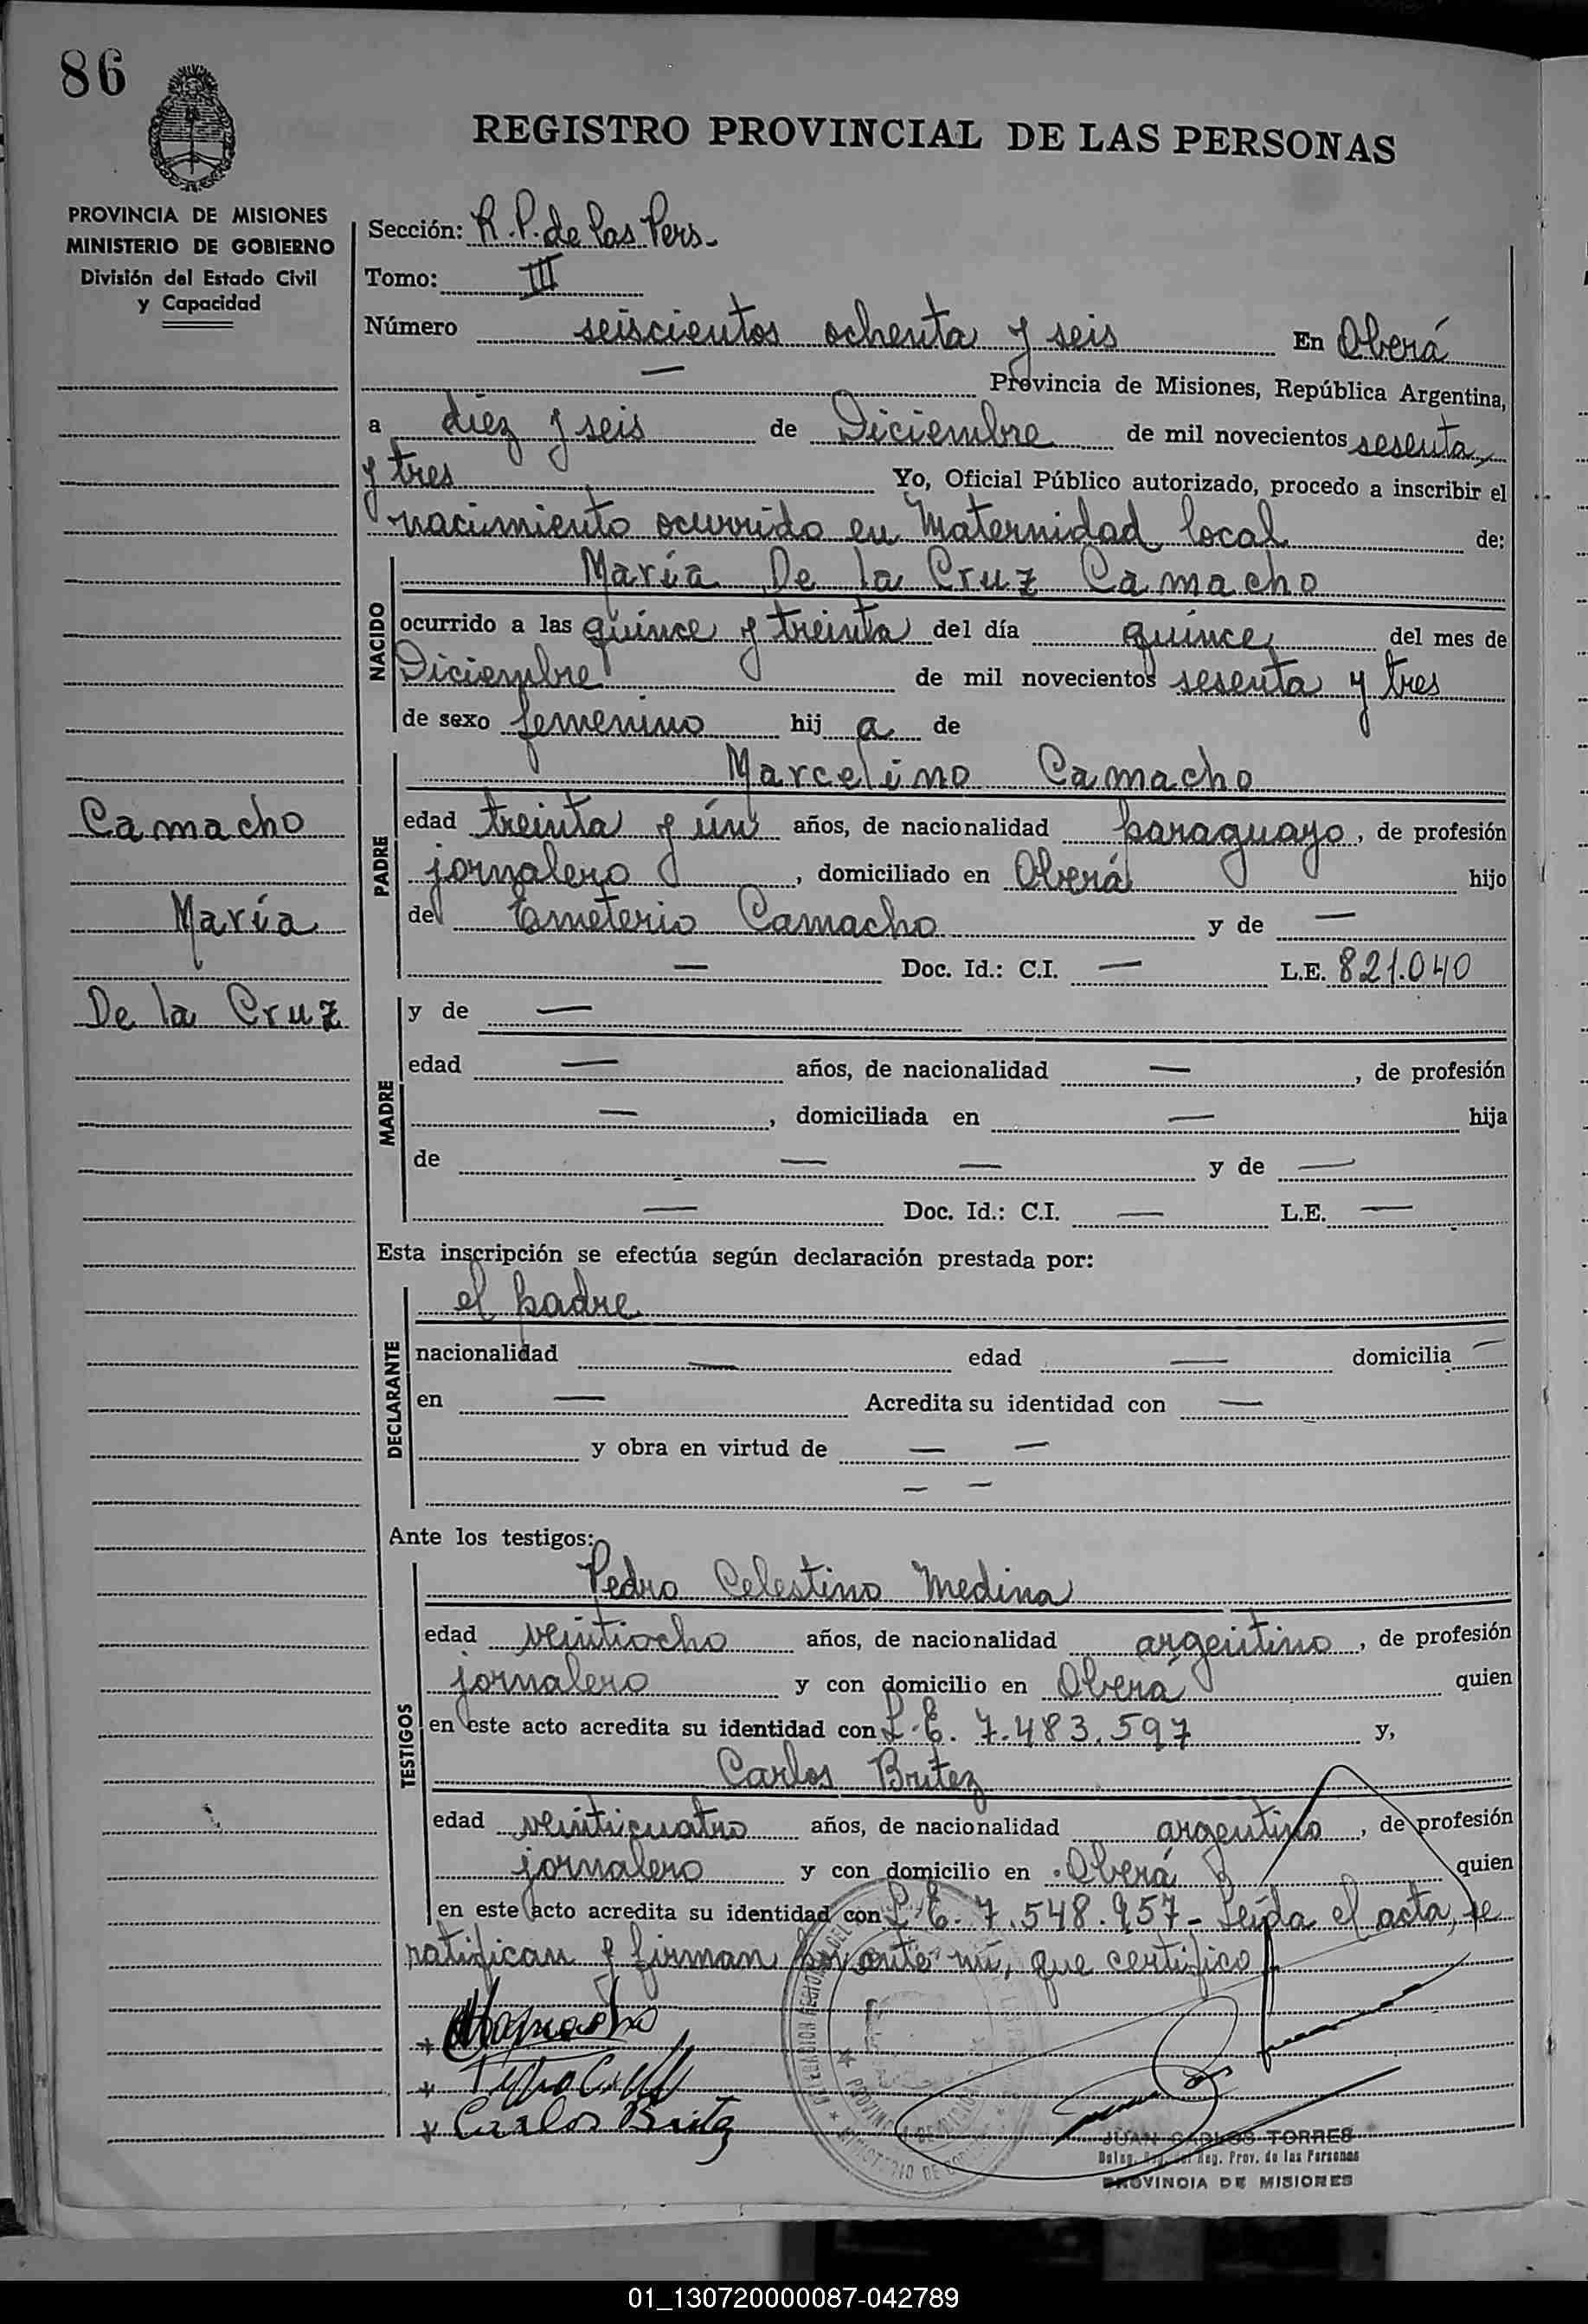 86
REGISTRO PROVINCIAL DE LAS PERSONAS
PROVINCIA DE MISIONES
MINISTERIO DE GOBIERNO
División del Estado Civil
y Capacidad
Sección: R.P. de las Pers.
Tomo: III
Número seiscientos ochenta y seis En Oberá
— Provincia de Misiones, República Argentina,
a diez y seis de Diciembre de mil novecientos sesenta
y tres Yo, Oficial Público autorizado, procedo a inscribir el
nacimiento ocurrido en Maternidad local de:
NACIDO
María De la Cruz Camacho
ocurrido a las quince y treinta del día quince del mes de
Diciembre de mil novecientos sesenta y tres
de sexo femenino hij a de
Camacho
María
De la Cruz
PADRE
Marcelino Camacho
edad treinta y ún años, de nacionalidad paraguayo, de profesión
jornalero, domiciliado en Oberá hijo
de Emeterio Camacho y de —
— Doc. Id.: C.I. — L.E. 821.040
MADRE
y de —
edad — años, de nacionalidad —, de profesión
—, domiciliada en — hija
de — — y de —
— Doc. Id.: C.I. — L.E. —
Esta inscripción se efectúa según declaración prestada por:
DECLARANTE
el padre
nacionalidad — edad — domicilia —
en — Acredita su identidad con —
y obra en virtud de — —
— —
Ante los testigos:
TESTIGOS
Pedro Celestino Medina
edad veintiocho años, de nacionalidad argentino, de profesión
jornalero y con domicilio en Oberá quien
en este acto acredita su identidad con L.E. 7.483.597 y,
Carlos Britez
edad veinticuatro años, de nacionalidad argentino, de profesión
jornalero y con domicilio en Oberá quien
en este acto acredita su identidad con L.E. 7.548.957 - Leída el acta, se
ratifican y firman por ante mí, que certifico
Carlos Britez
JUAN CARLOS TORRES
Reg. Prov. de las Personas
PROVINCIA DE MISIONES
01_130720000087-042789